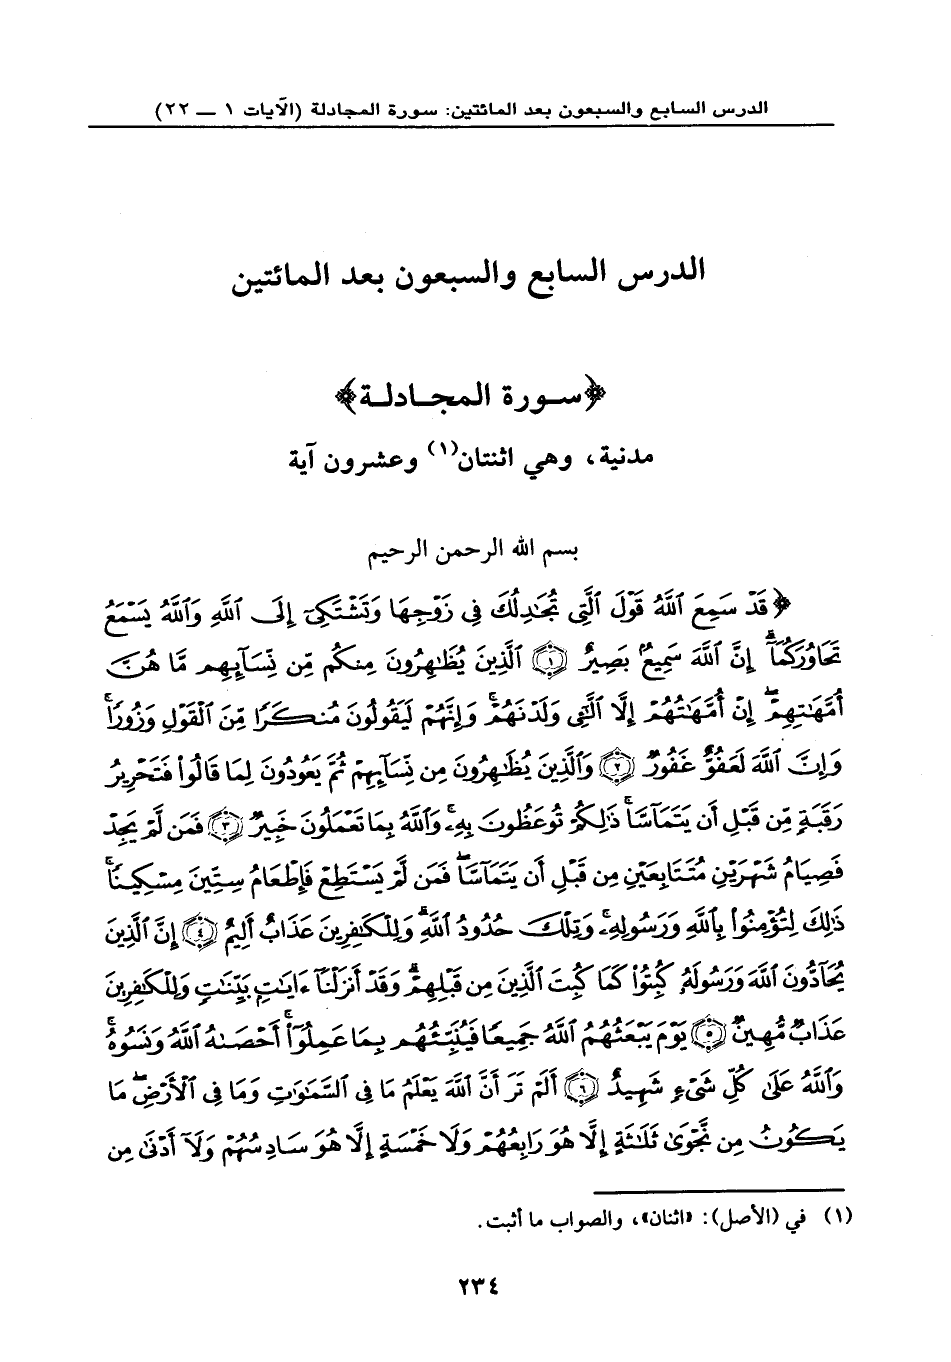 الدرس السابع والسبعون بعد المائتين: سورة المجادلة (الآيات ١ — ٢٢)
الدرس السابع والسبعون بعد المائتين
﴿سورة المجادلة﴾
مدنية، وهي اثنتان(١) وعشرون آية
بسم الله الرحمن الرحيم
﴿قَدْ سَمِعَ ٱللَّهُ قَوْلَ ٱلَّتِى تُجَٰدِلُكَ فِى زَوْجِهَا وَتَشْتَكِىٓ إِلَى ٱللَّهِ وَٱللَّهُ يَسْمَعُ
تَحَاوُرَكُمَآ ۚ إِنَّ ٱللَّهَ سَمِيعٌۢ بَصِيرٌ ١ ٱلَّذِينَ يُظَٰهِرُونَ مِنكُم مِّن نِّسَآئِهِم مَّا هُنَّ
أُمَّهَٰتِهِمْ ۖ إِنْ أُمَّهَٰتُهُمْ إِلَّا ٱلَّٰٓـِٔى وَلَدْنَهُمْ ۚ وَإِنَّهُمْ لَيَقُولُونَ مُنكَرًا مِّنَ ٱلْقَوْلِ وَزُورًا ۚ
وَإِنَّ ٱللَّهَ لَعَفُوٌّ غَفُورٌ ٢ وَٱلَّذِينَ يُظَٰهِرُونَ مِن نِّسَآئِهِمْ ثُمَّ يَعُودُونَ لِمَا قَالُوا۟ فَتَحْرِيرُ
رَقَبَةٍ مِّن قَبْلِ أَن يَتَمَآسَّا ۚ ذَٰلِكُمْ تُوعَظُونَ بِهِۦ ۚ وَٱللَّهُ بِمَا تَعْمَلُونَ خَبِيرٌ ٣ فَمَن لَّمْ يَجِدْ
فَصِيَامُ شَهْرَيْنِ مُتَتَابِعَيْنِ مِن قَبْلِ أَن يَتَمَآسَّا ۖ فَمَن لَّمْ يَسْتَطِعْ فَإِطْعَامُ سِتِّينَ مِسْكِينًا ۚ
ذَٰلِكَ لِتُؤْمِنُوا۟ بِٱللَّهِ وَرَسُولِهِۦ ۚ وَتِلْكَ حُدُودُ ٱللَّهِ ۗ وَلِلْكَٰفِرِينَ عَذَابٌ أَلِيمٌ ٤ إِنَّ ٱلَّذِينَ
يُحَآدُّونَ ٱللَّهَ وَرَسُولَهُۥ كُبِتُوا۟ كَمَا كُبِتَ ٱلَّذِينَ مِن قَبْلِهِمْ ۚ وَقَدْ أَنزَلْنَآ ءَايَٰتٍۭ بَيِّنَٰتٍ ۚ وَلِلْكَٰفِرِينَ
عَذَابٌ مُّهِينٌ ٥ يَوْمَ يَبْعَثُهُمُ ٱللَّهُ جَمِيعًا فَيُنَبِّئُهُم بِمَا عَمِلُوٓا۟ ۚ أَحْصَىٰهُ ٱللَّهُ وَنَسُوهُ ۚ
وَٱللَّهُ عَلَىٰ كُلِّ شَىْءٍ شَهِيدٌ ٦ أَلَمْ تَرَ أَنَّ ٱللَّهَ يَعْلَمُ مَا فِى ٱلسَّمَٰوَٰتِ وَمَا فِى ٱلْأَرْضِ ۖ مَا
يَكُونُ مِن نَّجْوَىٰ ثَلَٰثَةٍ إِلَّا هُوَ رَابِعُهُمْ وَلَا خَمْسَةٍ إِلَّا هُوَ سَادِسُهُمْ وَلَآ أَدْنَىٰ مِن
(١) في (الأصل): «اثنان»، والصواب ما أثبت.
٢٣٤